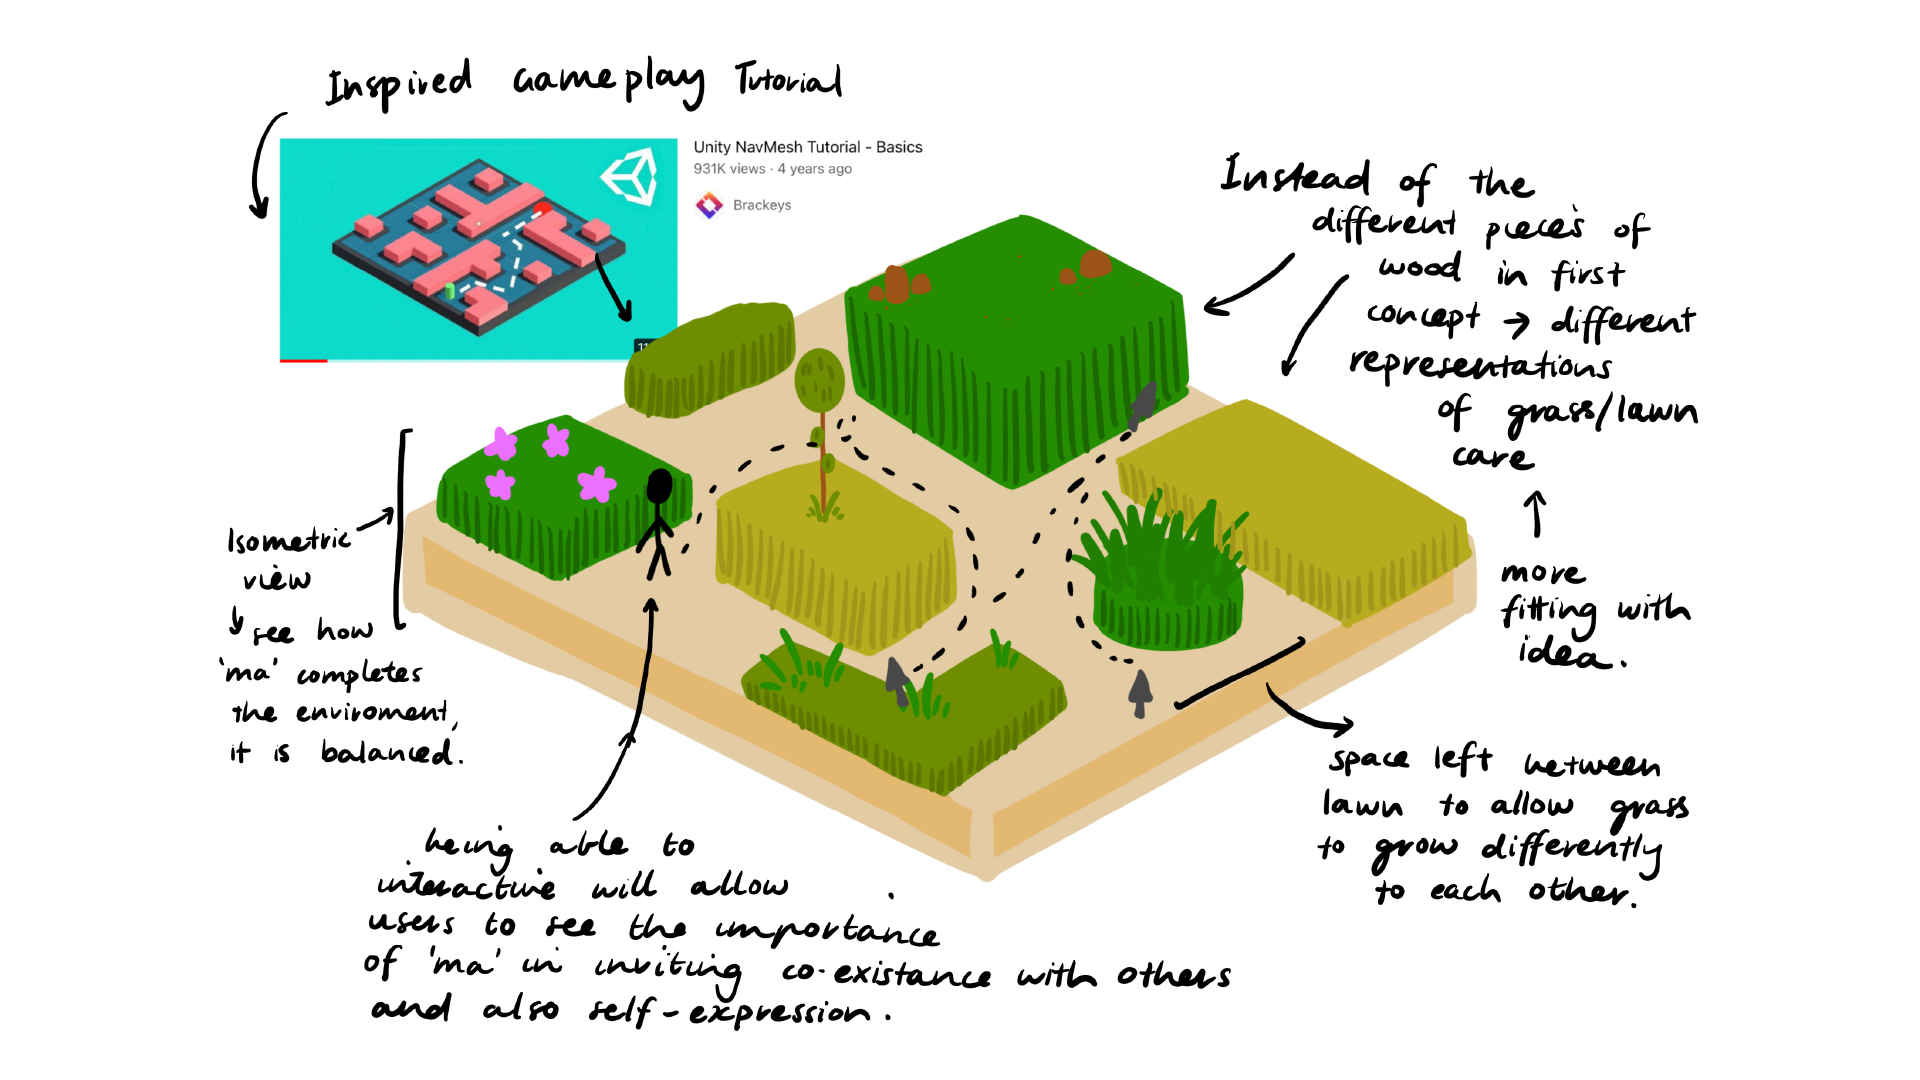 Inspired Gameplay Tutorial
Unity NavMesh Tutorial - Basics
931K views · 4 years ago
Brackeys
11
Instead of the
different pieces of
wood in first
concept → different
representations
of grass/lawn
care
more
fitting with
idea.
Isometric
view
see how
'ma' completes
the enviroment,
it is balanced.
being able to
interactive will allow
users to see the importance
of 'ma' in inviting co-existance with others
and also self-expression.
space left between
lawn to allow grass
to grow differently
to each other.